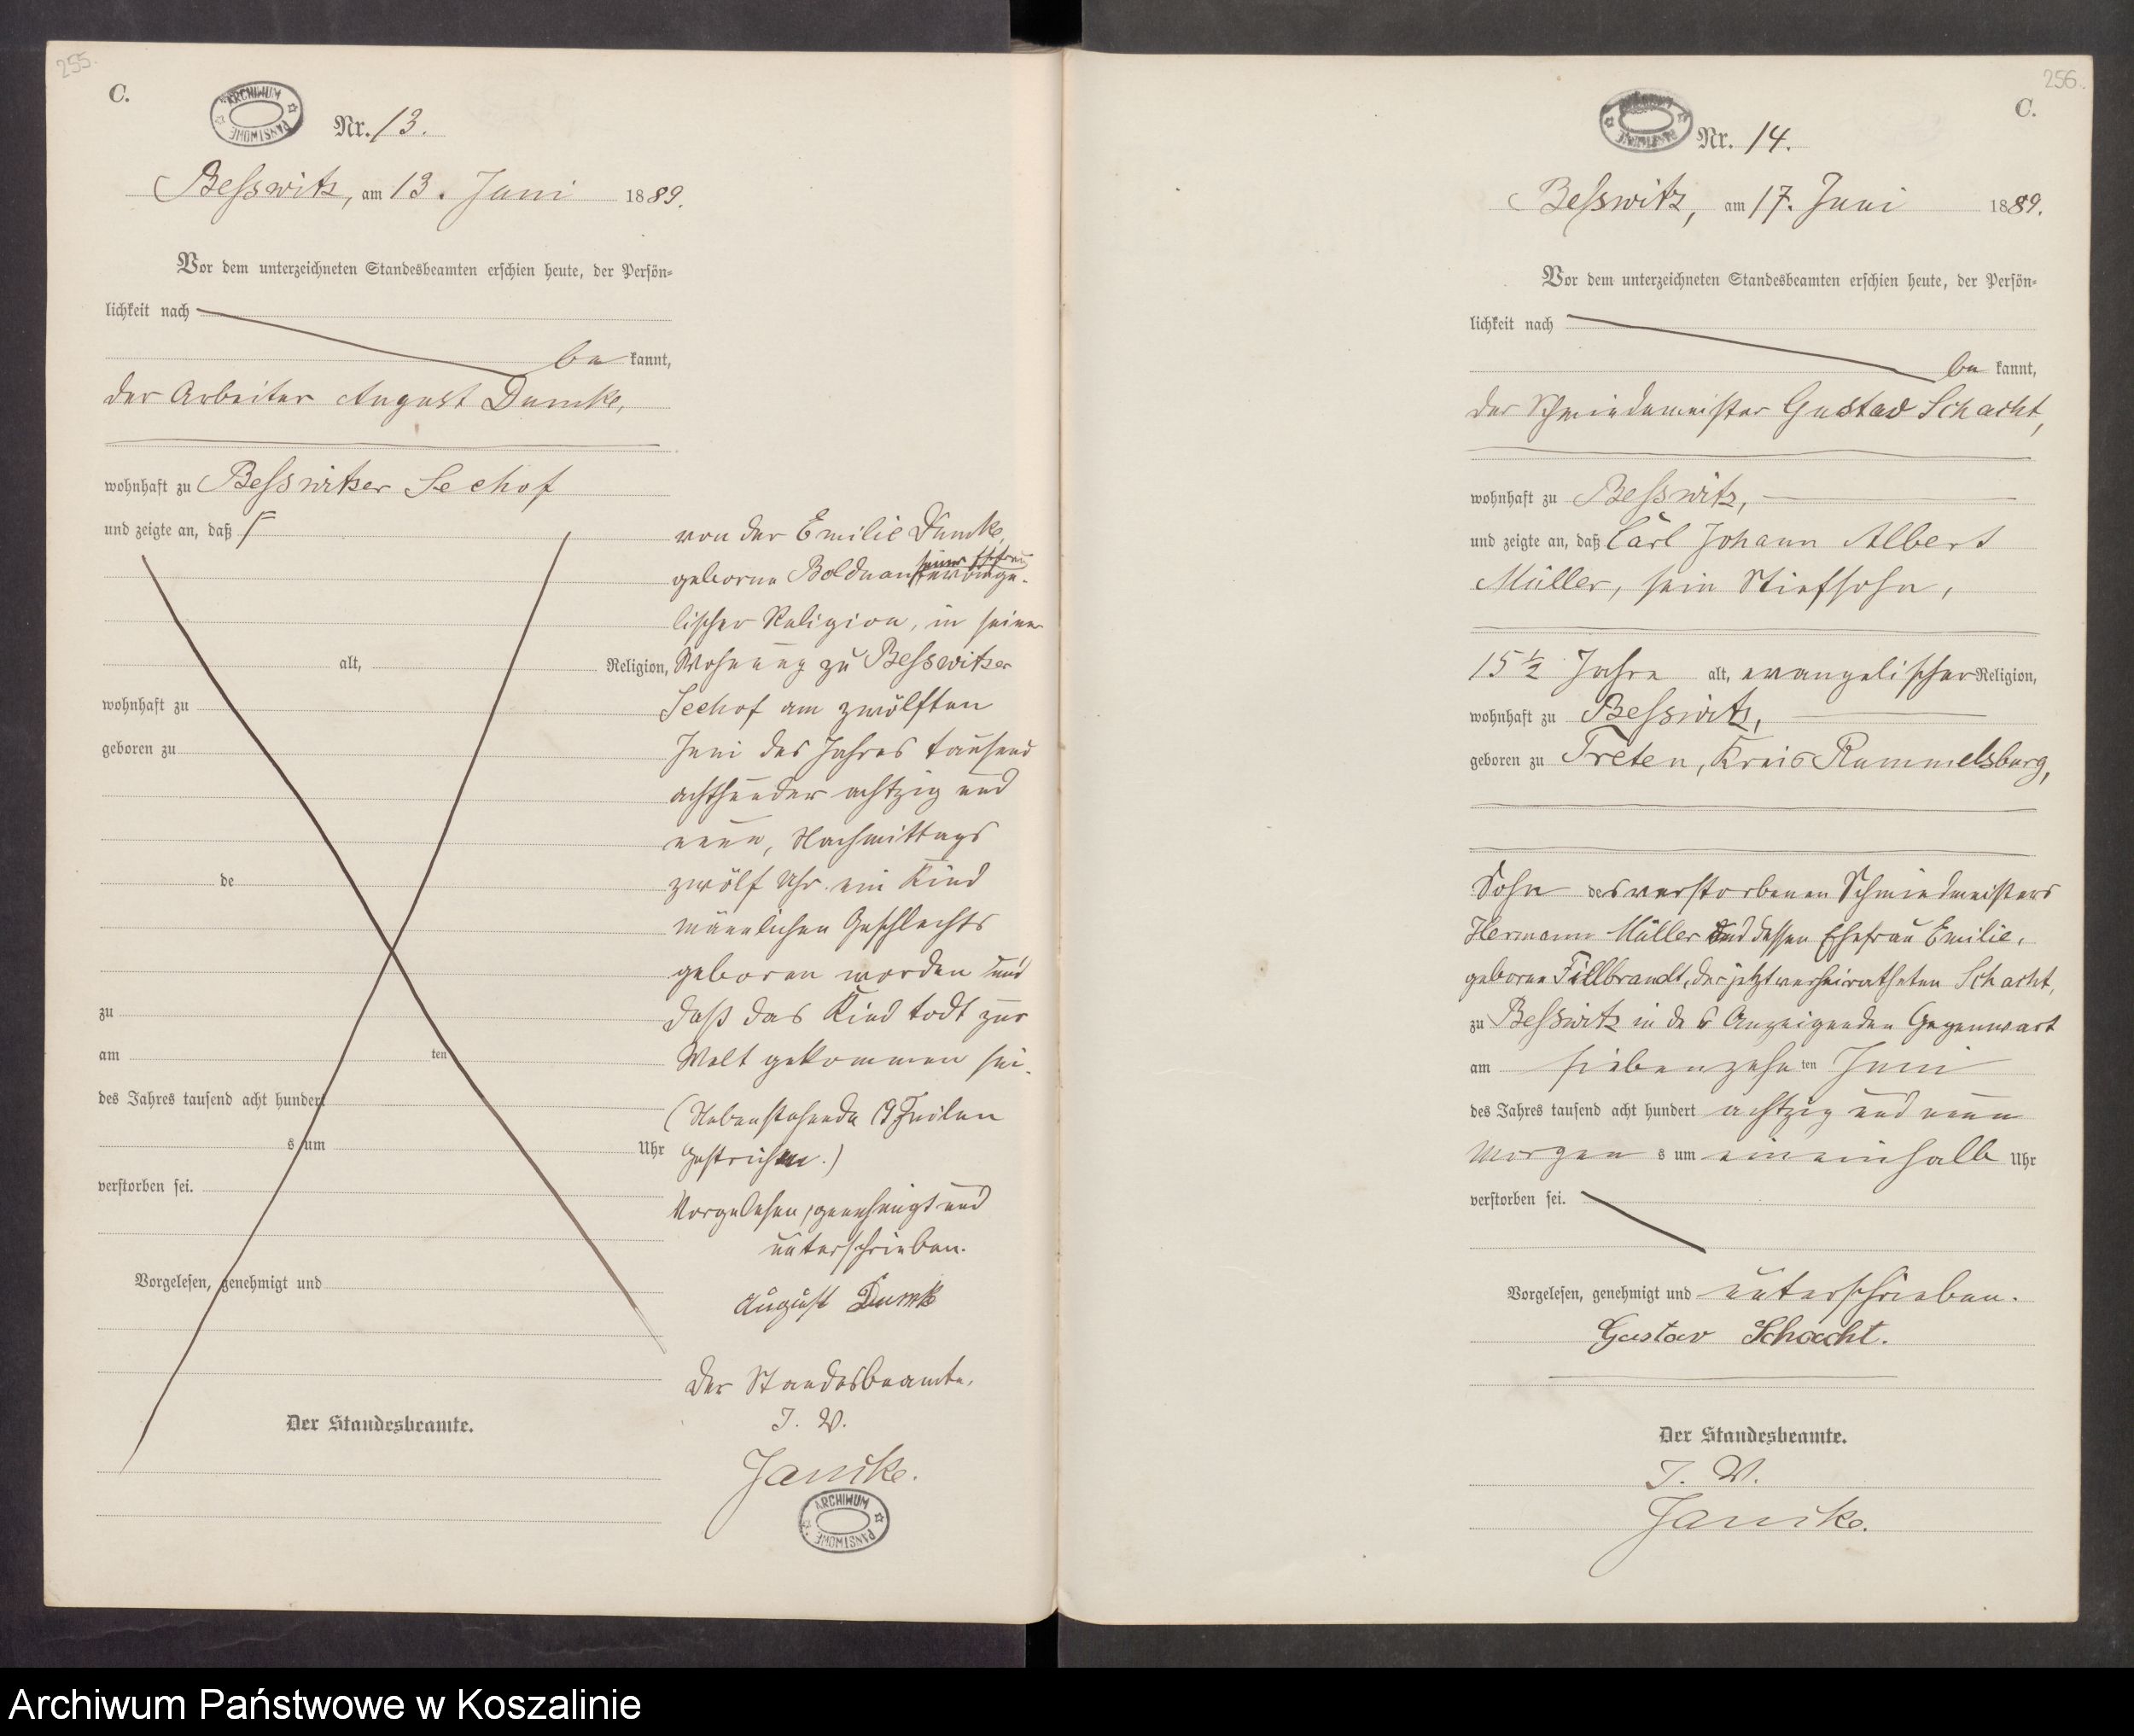 255.
C.
ARCHIWUM PAŃSTWOWE
Nr. 13.
Besswitz, am 13. Juni 1889.
Vor dem unterzeichneten Standesbeamten erschien heute, der Persön-
lichkeit nach
be kannt,
der Arbeiter August Dumke,
wohnhaft zu Besswitzer Seehof
und zeigte an, daß
alt, Religion,
wohnhaft zu
geboren zu
de
zu
am ten
des Jahres tausend acht hundert
s um Uhr
verstorben sei.
Vorgelesen, genehmigt und
Der Standesbeamte.
von der Emilie Dumke,
geborne Boldnan seiner Ehefrau evange-
lischer Religion, in seiner
Wohnung zu Besswitzer
Seehof am zwölften
Juni des Jahres tausend
achthunder achtzig und
neun, Nachmittags
zwölf Uhr ein Kind
männlichen Geschlechts
geboren worden und
daß das Kind todt zur
Welt gekommen sei.
(Nebenstehende 19 Zeilen
gestrichen.)
Vorgelesen, genehmigt und
unterschrieben.
August Dumk
Der Standesbeamte.
J. V.
Janike.
ARCHIWUM PAŃSTWOWE
256.
C.
Nr. 14.
Besswitz, am 17. Juni 1889.
Vor dem unterzeichneten Standesbeamten erschien heute, der Persön-
lichkeit nach
be kannt,
der Schmiedemeister Gustav Schacht,
wohnhaft zu Besswitz,
und zeigte an, daß Carl Johann Albert
Müller, sein Stiefsohn,
15 1/2 Jahre alt, evangelischer Religion,
wohnhaft zu Besswitz,
geboren zu Treten, Kreis Rummelsburg,
Sohn des verstorbenen Schmiedmeisters
Hermann Müller und dessen Ehefrau Emilie,
geborne Fillbrandt, der jetzt verheiratheten Schacht,
zu Besswitz in des Anzeigenden Gegenwart
am siebenzehn ten Juni
des Jahres tausend acht hundert achtzig und neun
Morgen s um eineinhalb Uhr
verstorben sei.
Vorgelesen, genehmigt und unterschrieben.
Gustav Schacht.
Der Standesbeamte.
J. V.
Janike.
Archiwum Państwowe w Koszalinie